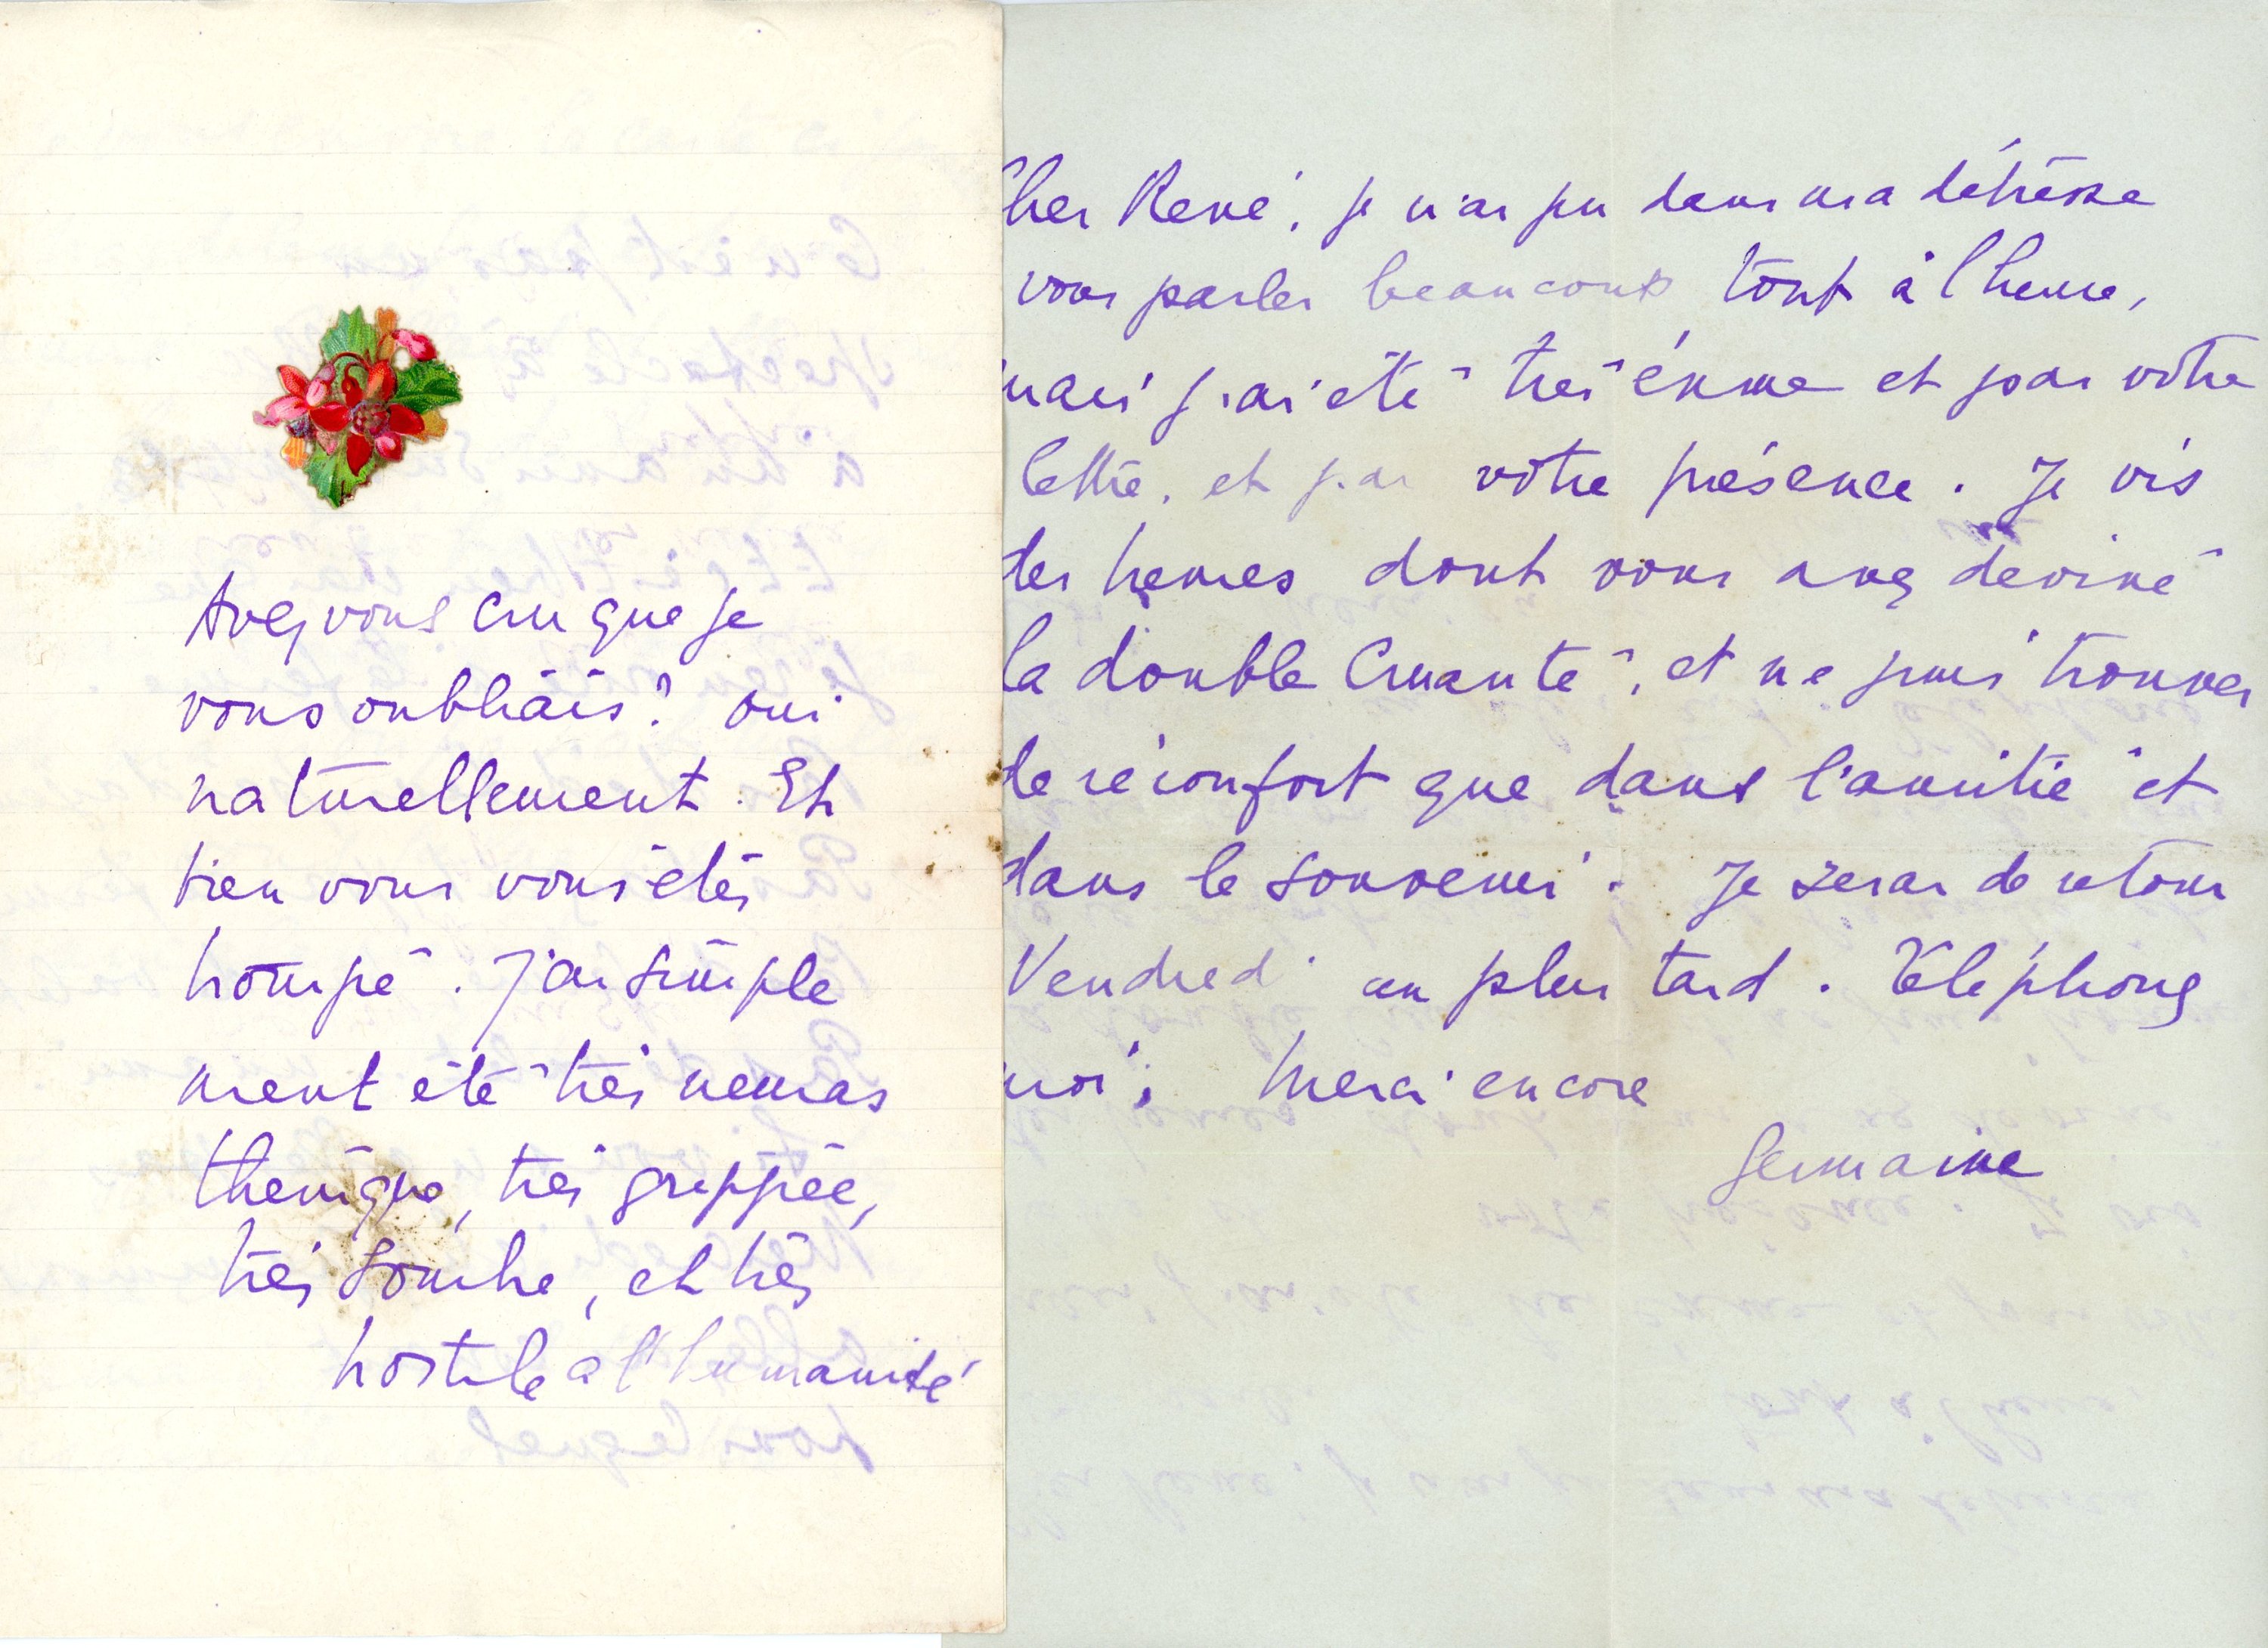 Avez vous cru que je
vous oubliais? oui
naturellement. Eh
bien vous vous êtes
trompé. J'ai simple
ment été très neuras
thénique, très grippée,
très sombre, et très
hostile à l'humanité
Cher René, je n'ai pu dans ma détresse
vous parler beaucoup tout à l'heure,
mais j'ai été très émue et par votre
lettre, et par votre présence. Je vis
des heures dont vous avez deviné
la double cruauté, et ne puis trouver
de réconfort que dans l'amitié et
dans le souvenir. Je serai de retour
Vendredi au plus tard. Téléphonez
moi; Merci encore
Germaine